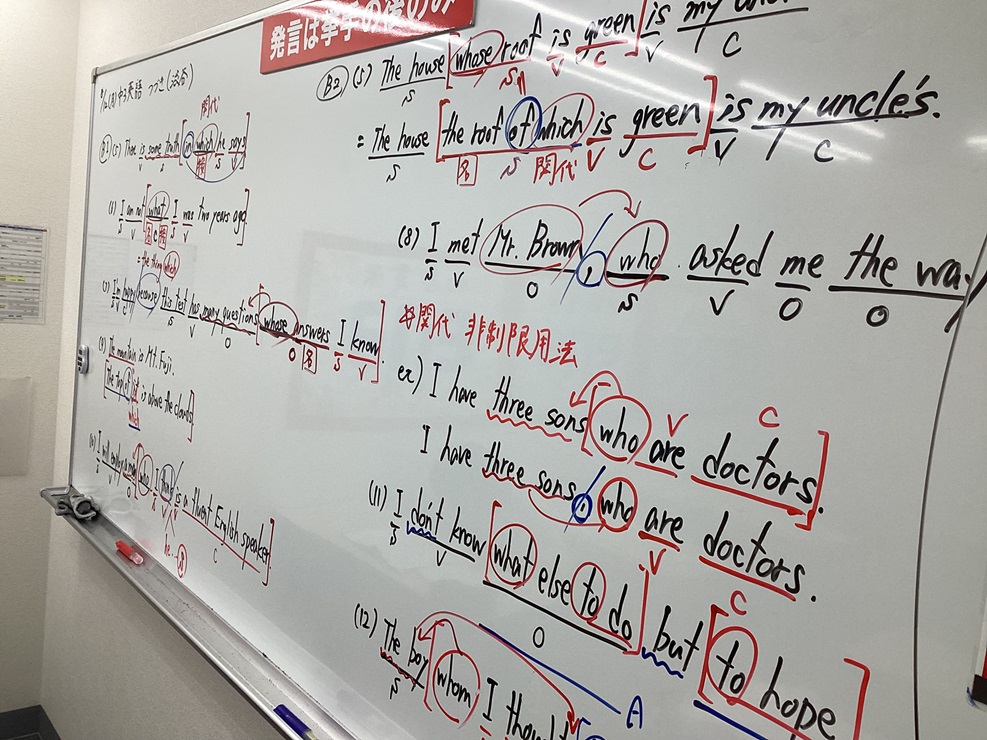 発言は挙手の後のみ
中3英語 つづき
関代
(5) There is some truth [in which he says]
名 関
S V
(1) I am not [what I was two years ago]
S V 名 C 関 S V
= the thing which
because this test has many questions [whose answers I know]
S V O O 名 S V
(9) The mountain is Mt. Fuji.
[The top of it is above the clouds]
which
who I think is a fluent English speaker]
C
he
B2 (5) The house [whose roof is green] is my
S S V C V C
= The house [the roof of which is green] is my uncle's.
S 名 S 関代 V C V C
(8) I met Mr. Brown, who asked me the way
S V O S V O O
関代 非制限用法
ex) I have three sons [who are doctors].
V C
I have three sons, who are doctors.
V C
(11) I don't know [what else to do] but [to hope
S V O
A
(12) The boy [whom I thought
S S